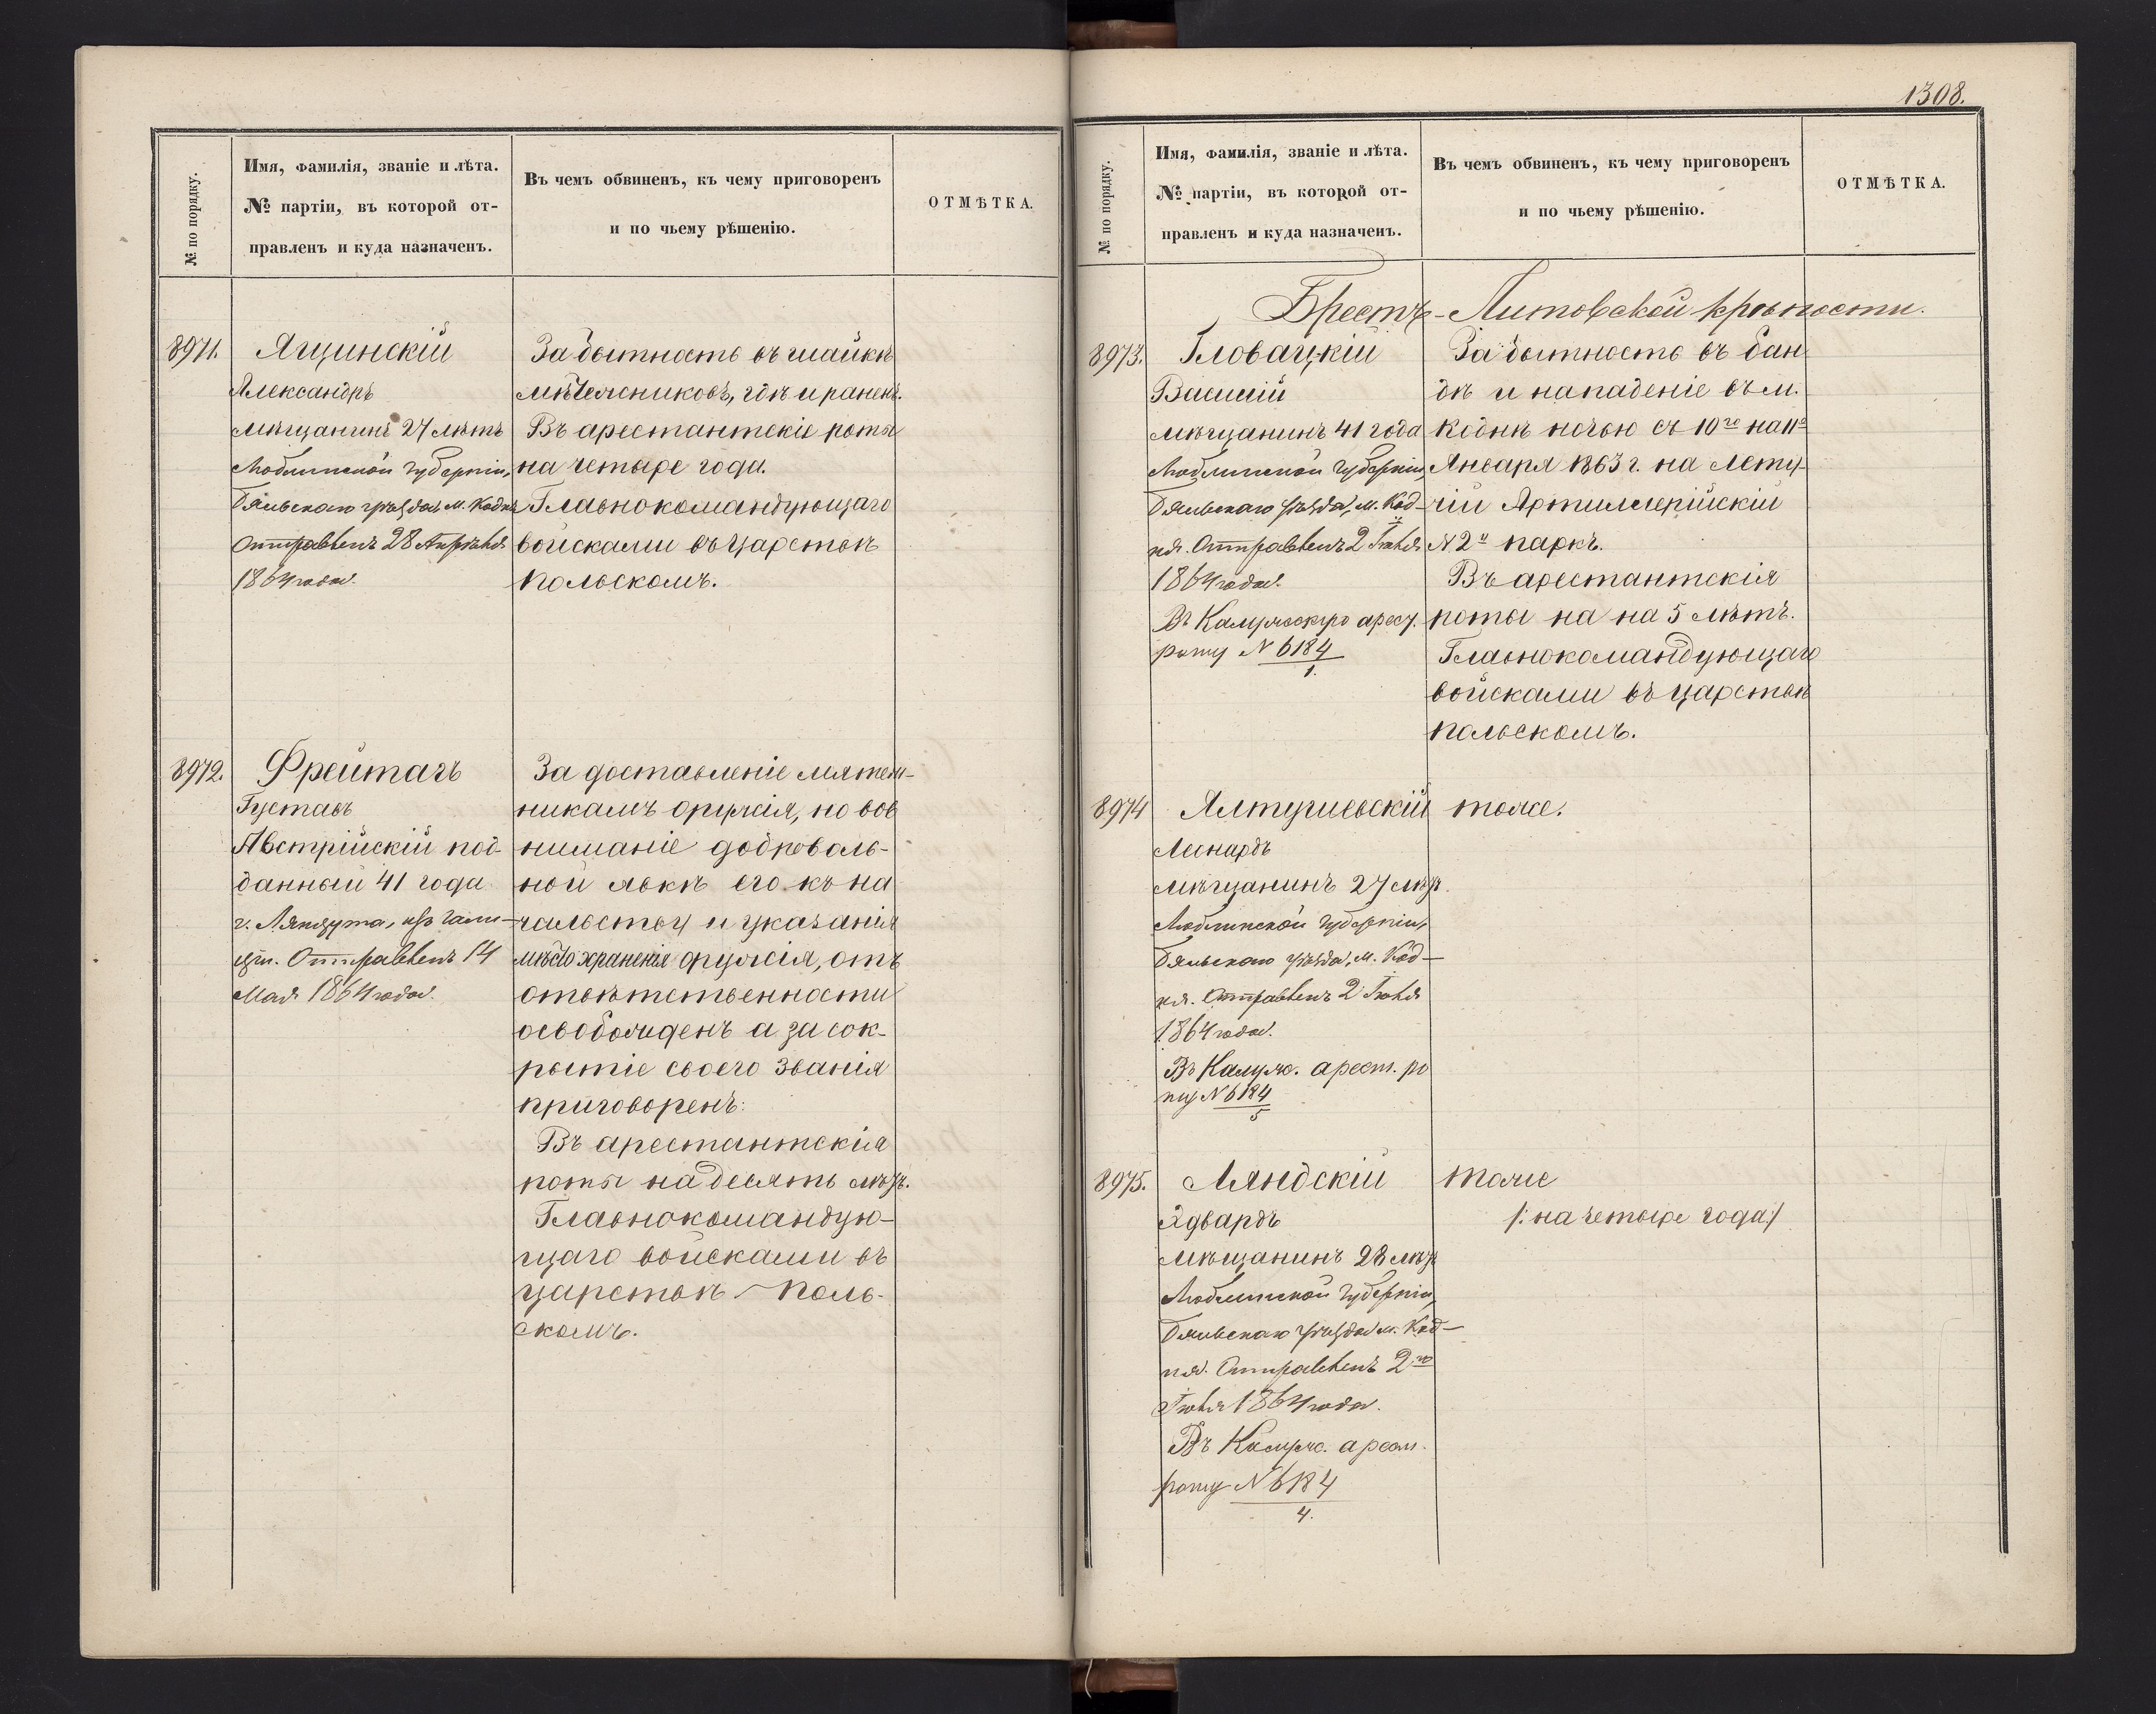 № по порядку.
Имя, фамилія, званіе и лѣта.
№ партіи, въ которой от-
правленъ и куда назначенъ.
Въ чемъ обвиненъ, къ чему приговоренъ
и по чьему рѣшенію.
ОТМѢТКА.
8971.
Ягцинскій
Александръ
мѣщанинъ 27 лѣтъ
Люблинской губерніи,
Бяльскаго уѣзда, м. Кодня
Отправленъ 28 Апрѣля
1864 года.
За бытность въ шайкѣ
мятежниковъ, гдѣ и раненъ.
Въ арестантскіе роты
на четыре года.
Главнокомандующаго
войсками въ царствѣ
польскомъ.
8972.
Фрейтагъ
Густавъ
Австрійскій под-
данный 41 года
г. Ляндута, изъ Гали-
ціи. Отправленъ 14
Мая 1864 года.
За доставленіе мятеж-
никамъ оружія, но вов
ниманіе доброволь-
ной явкѣ его къ на
чальству и указанія
мѣсто храненія оружія, отъ
отвѣтственности
освобожденъ а за сок-
рытіе своего званія
приговоренъ:
Въ арестантскія
роты на десять лѣтъ.
Главнокомандую-
щаго войсками въ
царствѣ поль-
скомъ.
1308.
№ по порядку.
Имя, фамилія, званіе и лѣта.
№ партіи, въ которой от-
правленъ и куда назначенъ.
Въ чемъ обвиненъ, къ чему приговоренъ
и по чьему рѣшенію.
ОТМѢТКА.
Брестъ-Литовской крѣпости.
8973.
Гловацкій
Василій
мѣщанинъ 41 года
Люблинской губерніи,
Бяльскаго уѣзда, м. Код-
ня. Отправленъ 2 Іюня
1864 года.
Въ Калужскую арест.
роту № 6184
1.
За бытность въ бан
дѣ и нападеніе въ м.
Коднѣ ночью съ 10го на 11е
Января 1863 г. на Лету-
чій Артиллерійскій
№ 2й паркъ.
Въ арестантскія
роты на на 5 лѣтъ.
Главнокомандующаго
войсками въ царствѣ
польскомъ.
8974
Ялтушевскій
Леонардъ
мѣщанинъ 27 лѣтъ.
Люблинской губерніи,
Бяльскаго уѣзда, м. Код-
ня. Отправленъ 2 Іюня
1864 года.
Въ Калуж. арест. ро
ту № 6184
5
тоже.
8975.
Ляндскій
Эдвардъ
мѣщанинъ 28 лѣтъ
Люблинской губерніи,
Бяльскаго уѣзда м. Код-
ня. Отправленъ 2го
Іюня 1864 года.
Въ Калуж. арест.
роту № 6184
4.
тоже
/: на четыре года :/